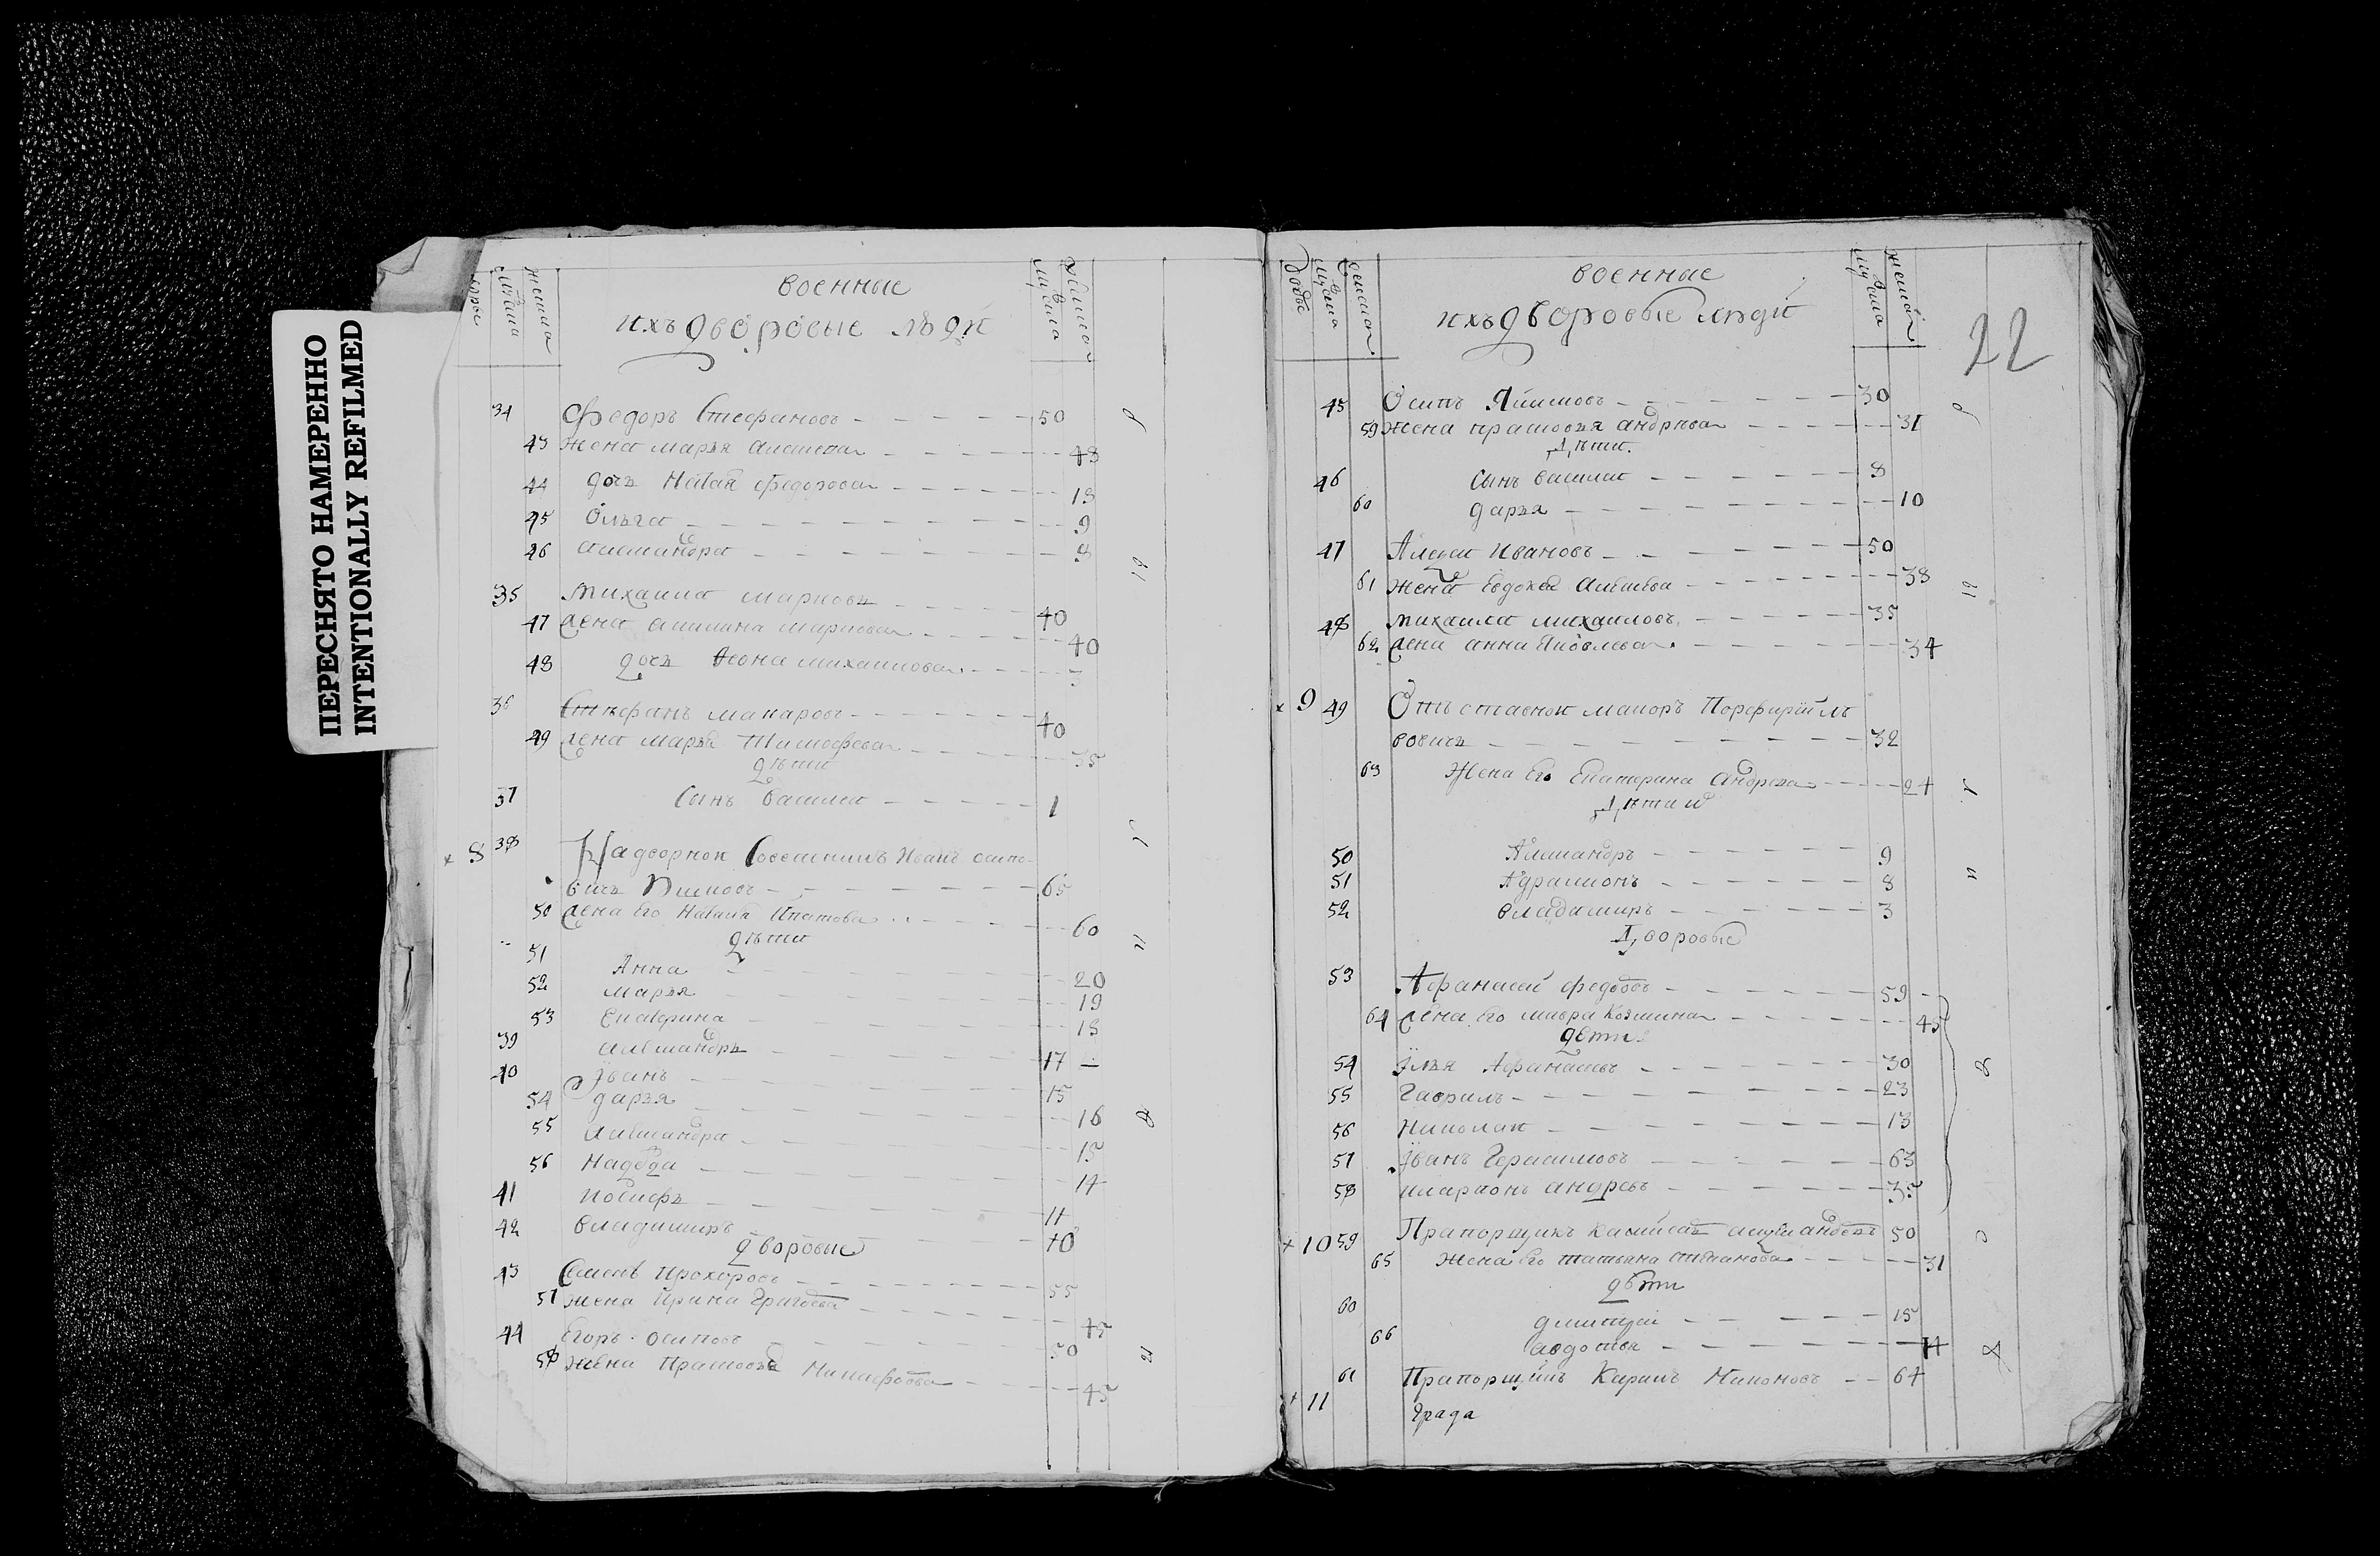 ПЕРЕСНЯТО НАМЕРЕННО
INTENTIONALLY REFILMED
военные
ихъ дворовые люди
34 Федоръ Стефановъ 50
43 жена марья 48
44 дочь Федорова 18
45 Ольга 9
46 александра 8
35 михаила марковъ 40
47 жена акилина маркова 40
48 дочь михаилова 3
36 Стефанъ макаровъ 40
49 жена марья Тимофева 35
дѣти
37 Сынъ василей 1
8 38 Надворнои Советникъ Иванъ осипо-
вичь 65
50 жена Его Наталя Ипатова 60
дѣти
51 Анна 20
52 марья 19
53 Екатерина 18
39 александръ 17
40 Іванъ 15
54 дарья 16
55 александра 15
56 Надежда 14
41 иосифъ 11
42 владимиръ 10
дворовые
43 Семенъ Прохоровъ 55
57 жена Ирина Григорева 45
44 Егоръ осиповъ 50
58 жена Прасковя Никифорова 45
военные
ихъ дворовые люди
22
45 Осипъ 30
59 жена прасковя андреева 31
дѣти.
46 сынъ василеи 8
60 дарья 10
47 Алексѣи Ивановъ 50
61 жена Евдокея 38
48 михаила михаиловъ 35
62 жена анна Яковлева 34
9 49 Отставнои маиоръ Порфирий
вовичь 32
63 Жена Его Екатерина андреева 24
дѣти
50 Александръ 9
51 Адрашионъ 8
52 владимиръ 3
дворовые
53 Афанасеи федоровъ 59
64 жена Его мавра Козмина 45
дети
54 Илья Афанасьевъ 30
55 Гаврилъ 23
56 Николаи 13
57 Іванъ Герасимовъ 63
58 иларионъ андреевъ 35
10 59 Прапорщикъ 50
65 жена Его татьяна степанова 31
дѣти
60 дмитреи 15
66 авдотия 14
61 Прапорщикъ Никоновъ 64
11 града